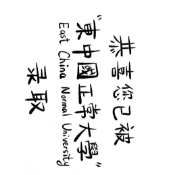 恭喜您已被
“東中國正常大學”
East China Normal University
录取